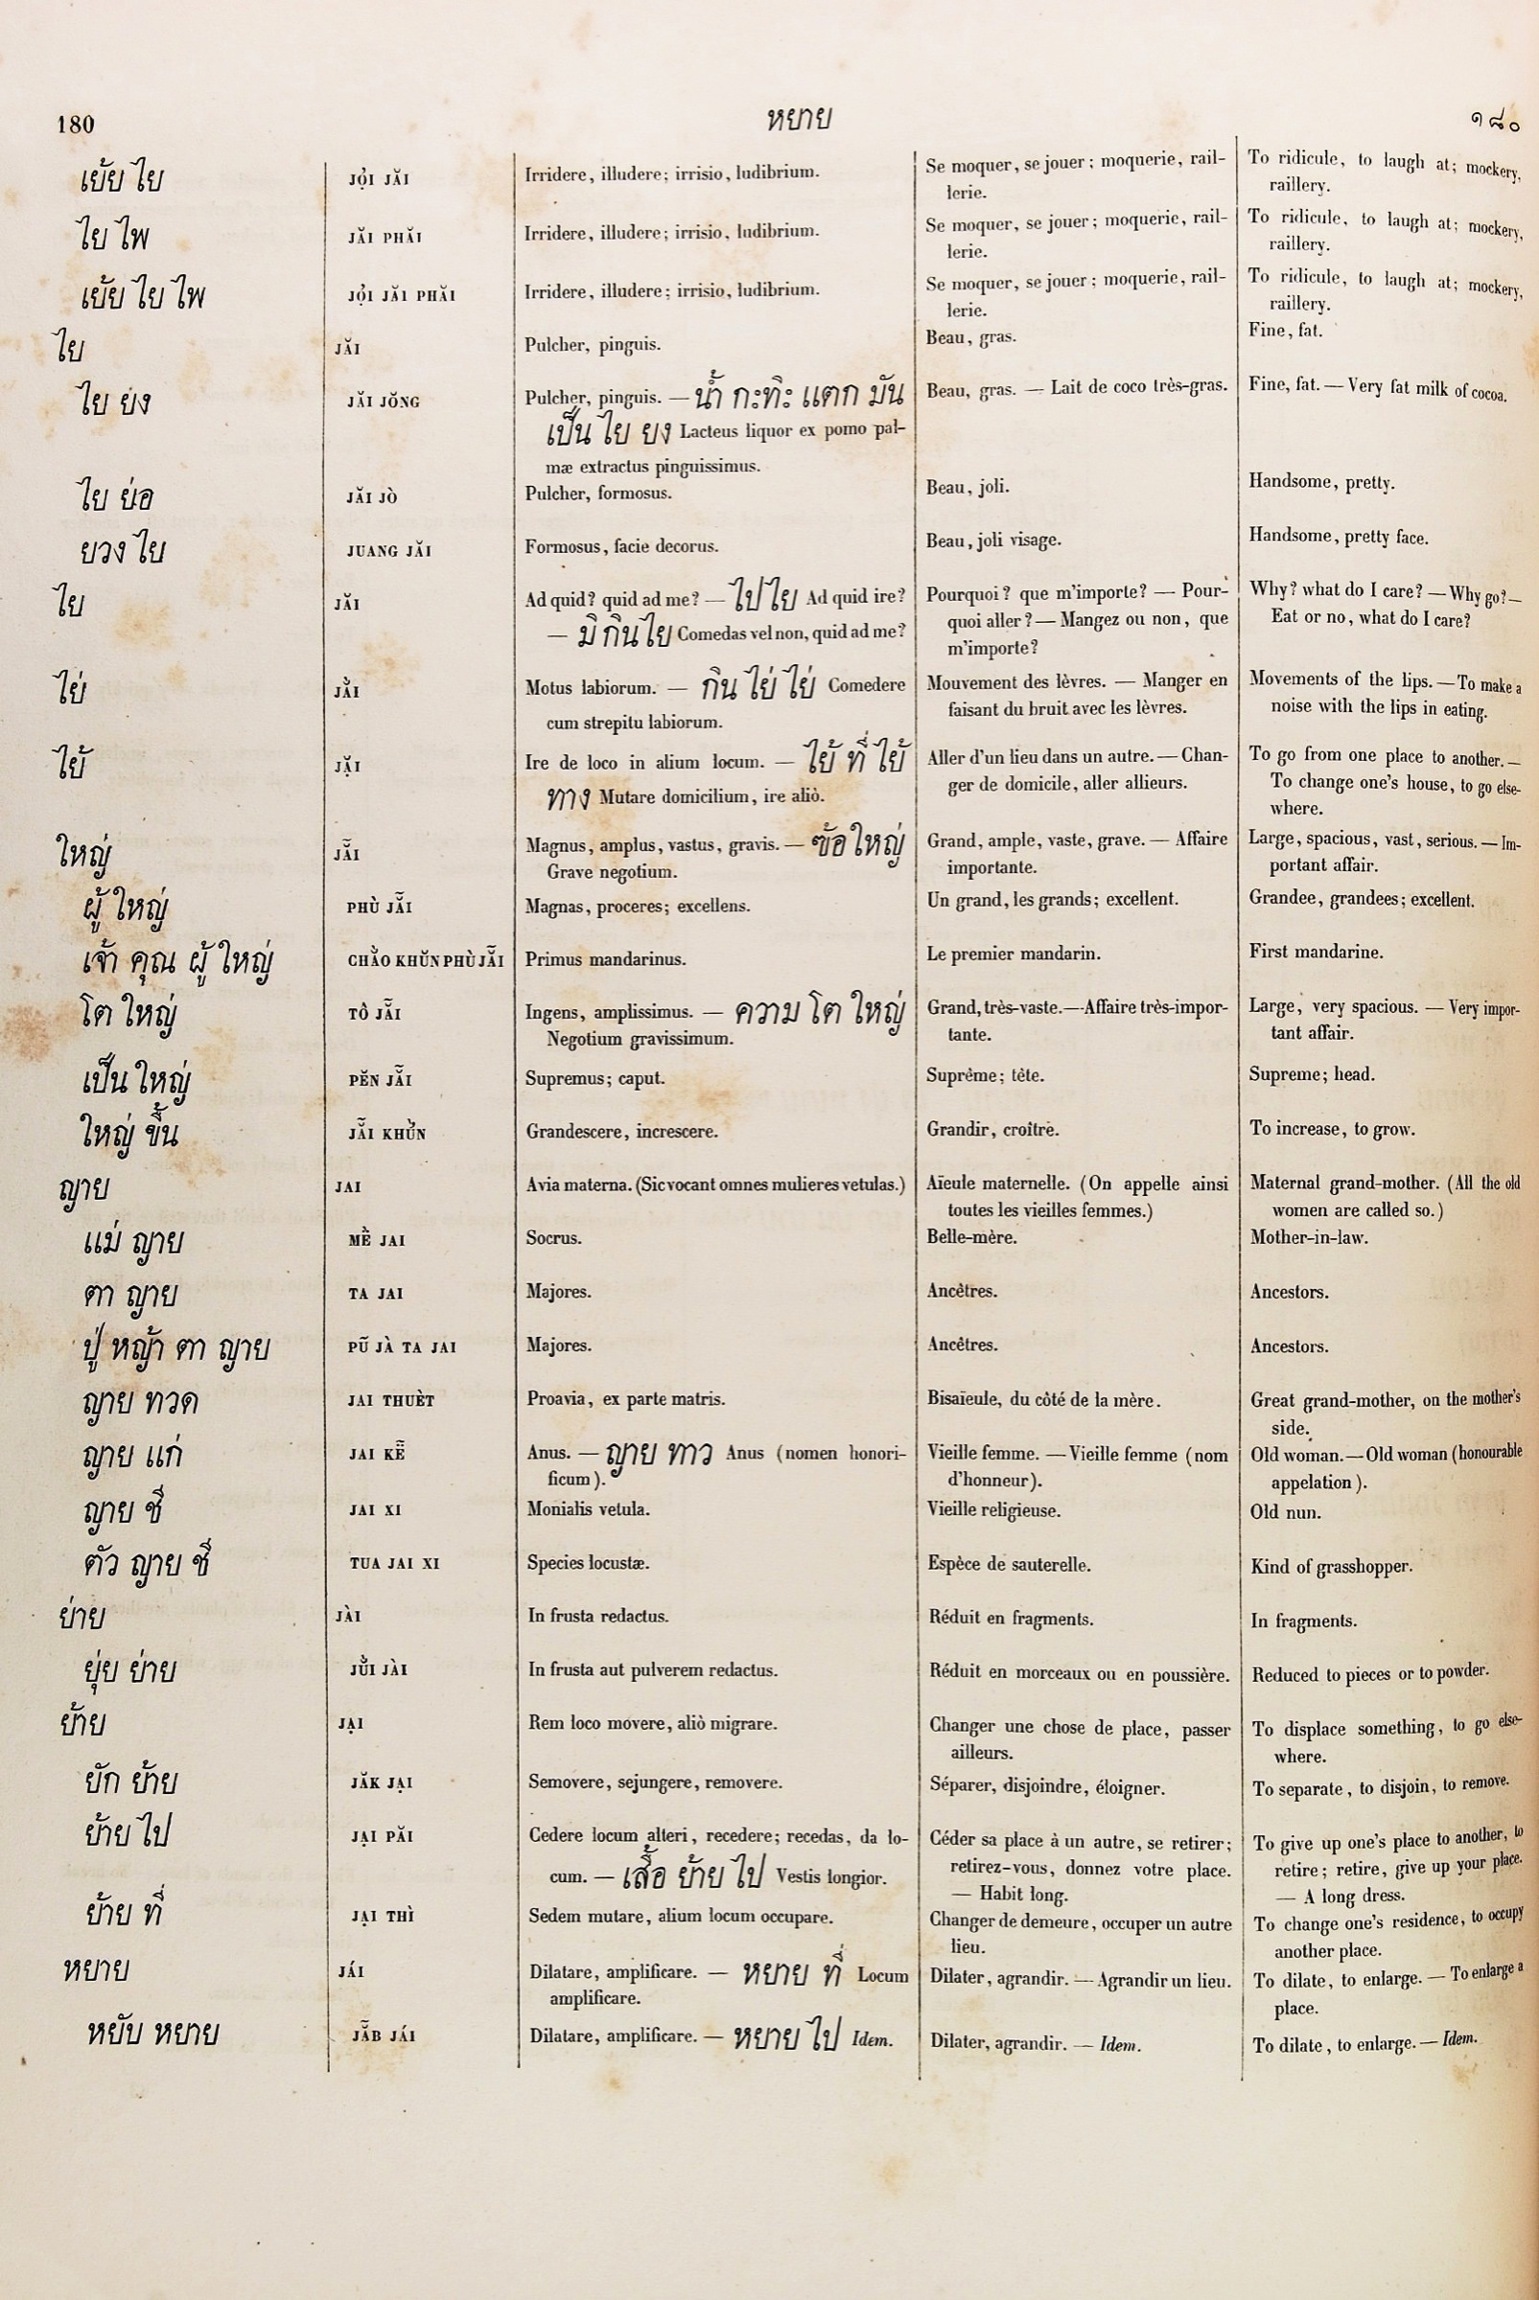 180 หยาย ๑๘๐
เย้ย ไย JỌ̉I JĂI Irridere, illudere; irrisio, ludibrium. Se moquer, se jouer; moquerie, rail- To ridicule, to laugh at; mockery,
lerie. raillery.
ไย ไพ JĂI PHĂI Irridere, illudere; irrisio, ludibrium. Se moquer, se jouer; moquerie, rail- To ridicule, to laugh at; mockery,
lerie. raillery.
เย้ย ไย ไพ JỌ̉I JĂI PHĂI Irridere, illudere; irrisio, ludibrium. Se moquer, se jouer; moquerie, rail- To ridicule, to laugh at; mockery,
lerie. raillery.
ไย JĂI Pulcher, pinguis. Beau, gras. Fine, fat.
ไย ยง JĂI JŎNG Pulcher, pinguis. — น้ำ กะทิะ แตก มัน Beau, gras. — Lait de coco très-gras. Fine, fat. — Very fat milk of cocoa.
เป็น ไย ยง Lacteus liquor ex pomo pal-
mæ extractus pinguissimus.
ไย ย่อ JĂI JÒ Pulcher, formosus. Beau, joli. Handsome, pretty.
ยวง ไย JUANG JĂI Formosus, facie decorus. Beau, joli visage. Handsome, pretty face.
ไย JĂI Ad quid? quid ad me? — ไปไย Ad quid ire? Pourquoi? que m'importe? — Pour- Why? what do I care? — Why go? —
— มิ กินไย Comedas vel non, quid ad me? quoi aller? — Mangez ou non, que Eat or no, what do I care?
m'importe?
ไย่ JẲI Motus labiorum. — กิน ไย่ ไย่ Comedere Mouvement des lèvres. — Manger en Movements of the lips. — To make a
cum strepitu labiorum. faisant du bruit avec les lèvres. noise with the lips in eating.
ไย้ JẶI Ire de loco in alium locum. — ไย้ ที่ ไย้ Aller d'un lieu dans un autre. — Chan- To go from one place to another. —
ทาง Mutare domicilium, ire aliò. ger de domicile, aller allieurs. To change one's house, to go else-
where.
ใหญ่ JẴI Magnus, amplus, vastus, gravis. — ข้อ ใหญ่ Grand, ample, vaste, grave. — Affaire Large, spacious, vast, serious. — Im-
Grave negotium. importante. portant affair.
ผู้ ใหญ่ PHÙ JẴI Magnas, proceres; excellens. Un grand, les grands; excellent. Grandee, grandees; excellent.
เจ้า คุณ ผู้ ใหญ่ CHẢO KHŬN PHÙ JẴI Primus mandarinus. Le premier mandarin. First mandarine.
โต ใหญ่ TÔ JẴI Ingens, amplissimus. — ความ โต ใหญ่ Grand, très-vaste. — Affaire très-impor- Large, very spacious. — Very impor-
Negotium gravissimum. tante. tant affair.
เป็น ใหญ่ PĔN JẴI Supremus; caput. Suprême; tête. Supreme; head.
ใหญ่ ขึ้น JẴI KHỦN Grandescere, increscere. Grandir, croître. To increase, to grow.
ญาย JAI Avia materna. (Sic vocant omnes mulieres vetulas.) Aïeule maternelle. (On appelle ainsi Maternal grand-mother. (All the old
toutes les vieilles femmes.) women are called so.)
แม่ ญาย MÈ JAI Socrus. Belle-mère. Mother-in-law.
ตา ญาย TA JAI Majores. Ancêtres. Ancestors.
ปู่ หญ้า ตา ญาย PŨ JÀ TA JAI Majores. Ancêtres. Ancestors.
ญาย ทวด JAI THUÈT Proavia, ex parte matris. Bisaïeule, du côté de la mère. Great grand-mother, on the mother's
side.
ญาย แก่ JAI KẼ Anus. — ญาย ทาว Anus (nomen honori- Vieille femme. — Vieille femme (nom Old woman. — Old woman (honourable
ficum). d'honneur). appelation).
ญาย ชี JAI XI Monialis vetula. Vieille religieuse. Old nun.
ตัว ญาย ชี TUA JAI XI Species locustæ. Espèce de sauterelle. Kind of grasshopper.
ย่าย JÀI In frusta redactus. Réduit en fragments. In fragments.
ยุ่ย ย่าย JŬ̉I JÀI In frusta aut pulverem redactus. Réduit en morceaux ou en poussière. Reduced to pieces or to powder.
ย้าย JẠI Rem loco movere, aliò migrare. Changer une chose de place, passer To displace something, to go else-
ailleurs. where.
ยัก ย้าย JĂK JẠI Semovere, sejungere, removere. Séparer, disjoindre, éloigner. To separate, to disjoin, to remove.
ย้าย ไป JẠI PĂI Cedere locum alteri, recedere; recedas, da lo- Céder sa place à un autre, se retirer; To give up one's place to another, to
cum. — เสื้อ ย้าย ไป Vestis longior. retirez-vous, donnez votre place. retire; retire, give up your place.
— Habit long. — A long dress.
ย้าย ที่ JẠI THÌ Sedem mutare, alium locum occupare. Changer de demeure, occuper un autre To change one's residence, to occupy
lieu. another place.
หยาย JÁI Dilatare, amplificare. — หยาย ที่ Locum Dilater, agrandir. — Agrandir un lieu. To dilate, to enlarge. — To enlarge a
amplificare. place.
หยับ หยาย JẴB JÁI Dilatare, amplificare. — หยาย ไป Idem. Dilater, agrandir. — Idem. To dilate, to enlarge. — Idem.